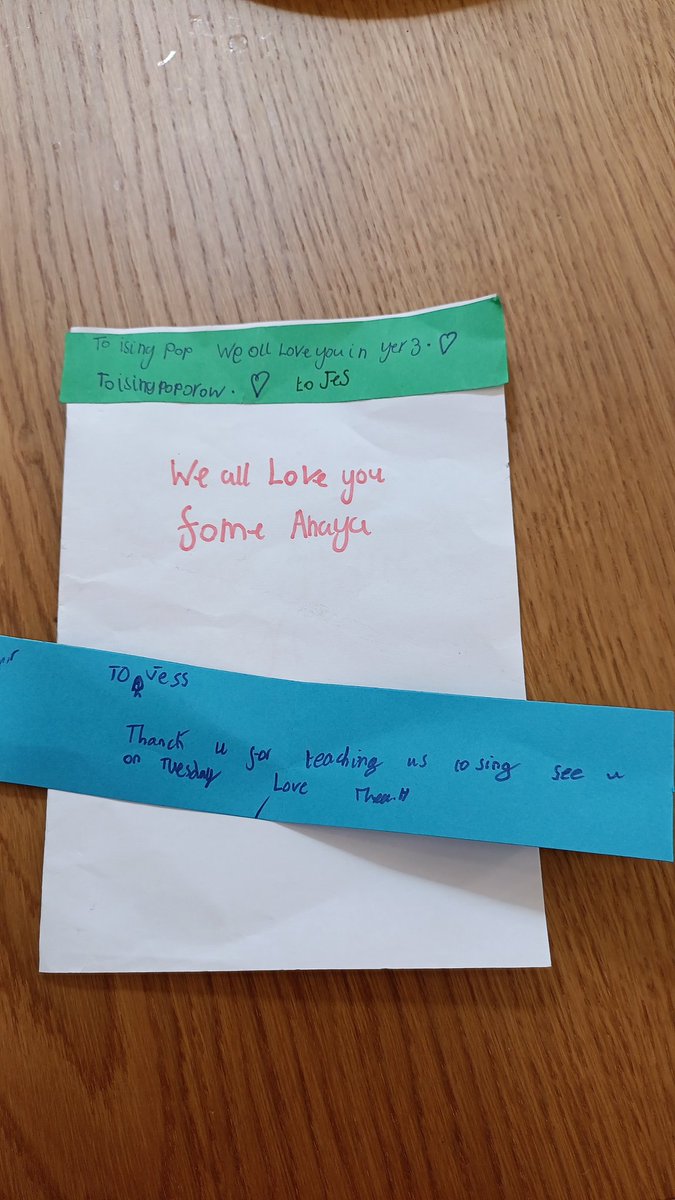 To ising Pop We all Love you in yer 3. ♡
To ising pop orow. ♡ to Jes
We all Love you
fome Anaya
TO Jess
Thanck u for teaching us to sing see u
on Tuesday Love